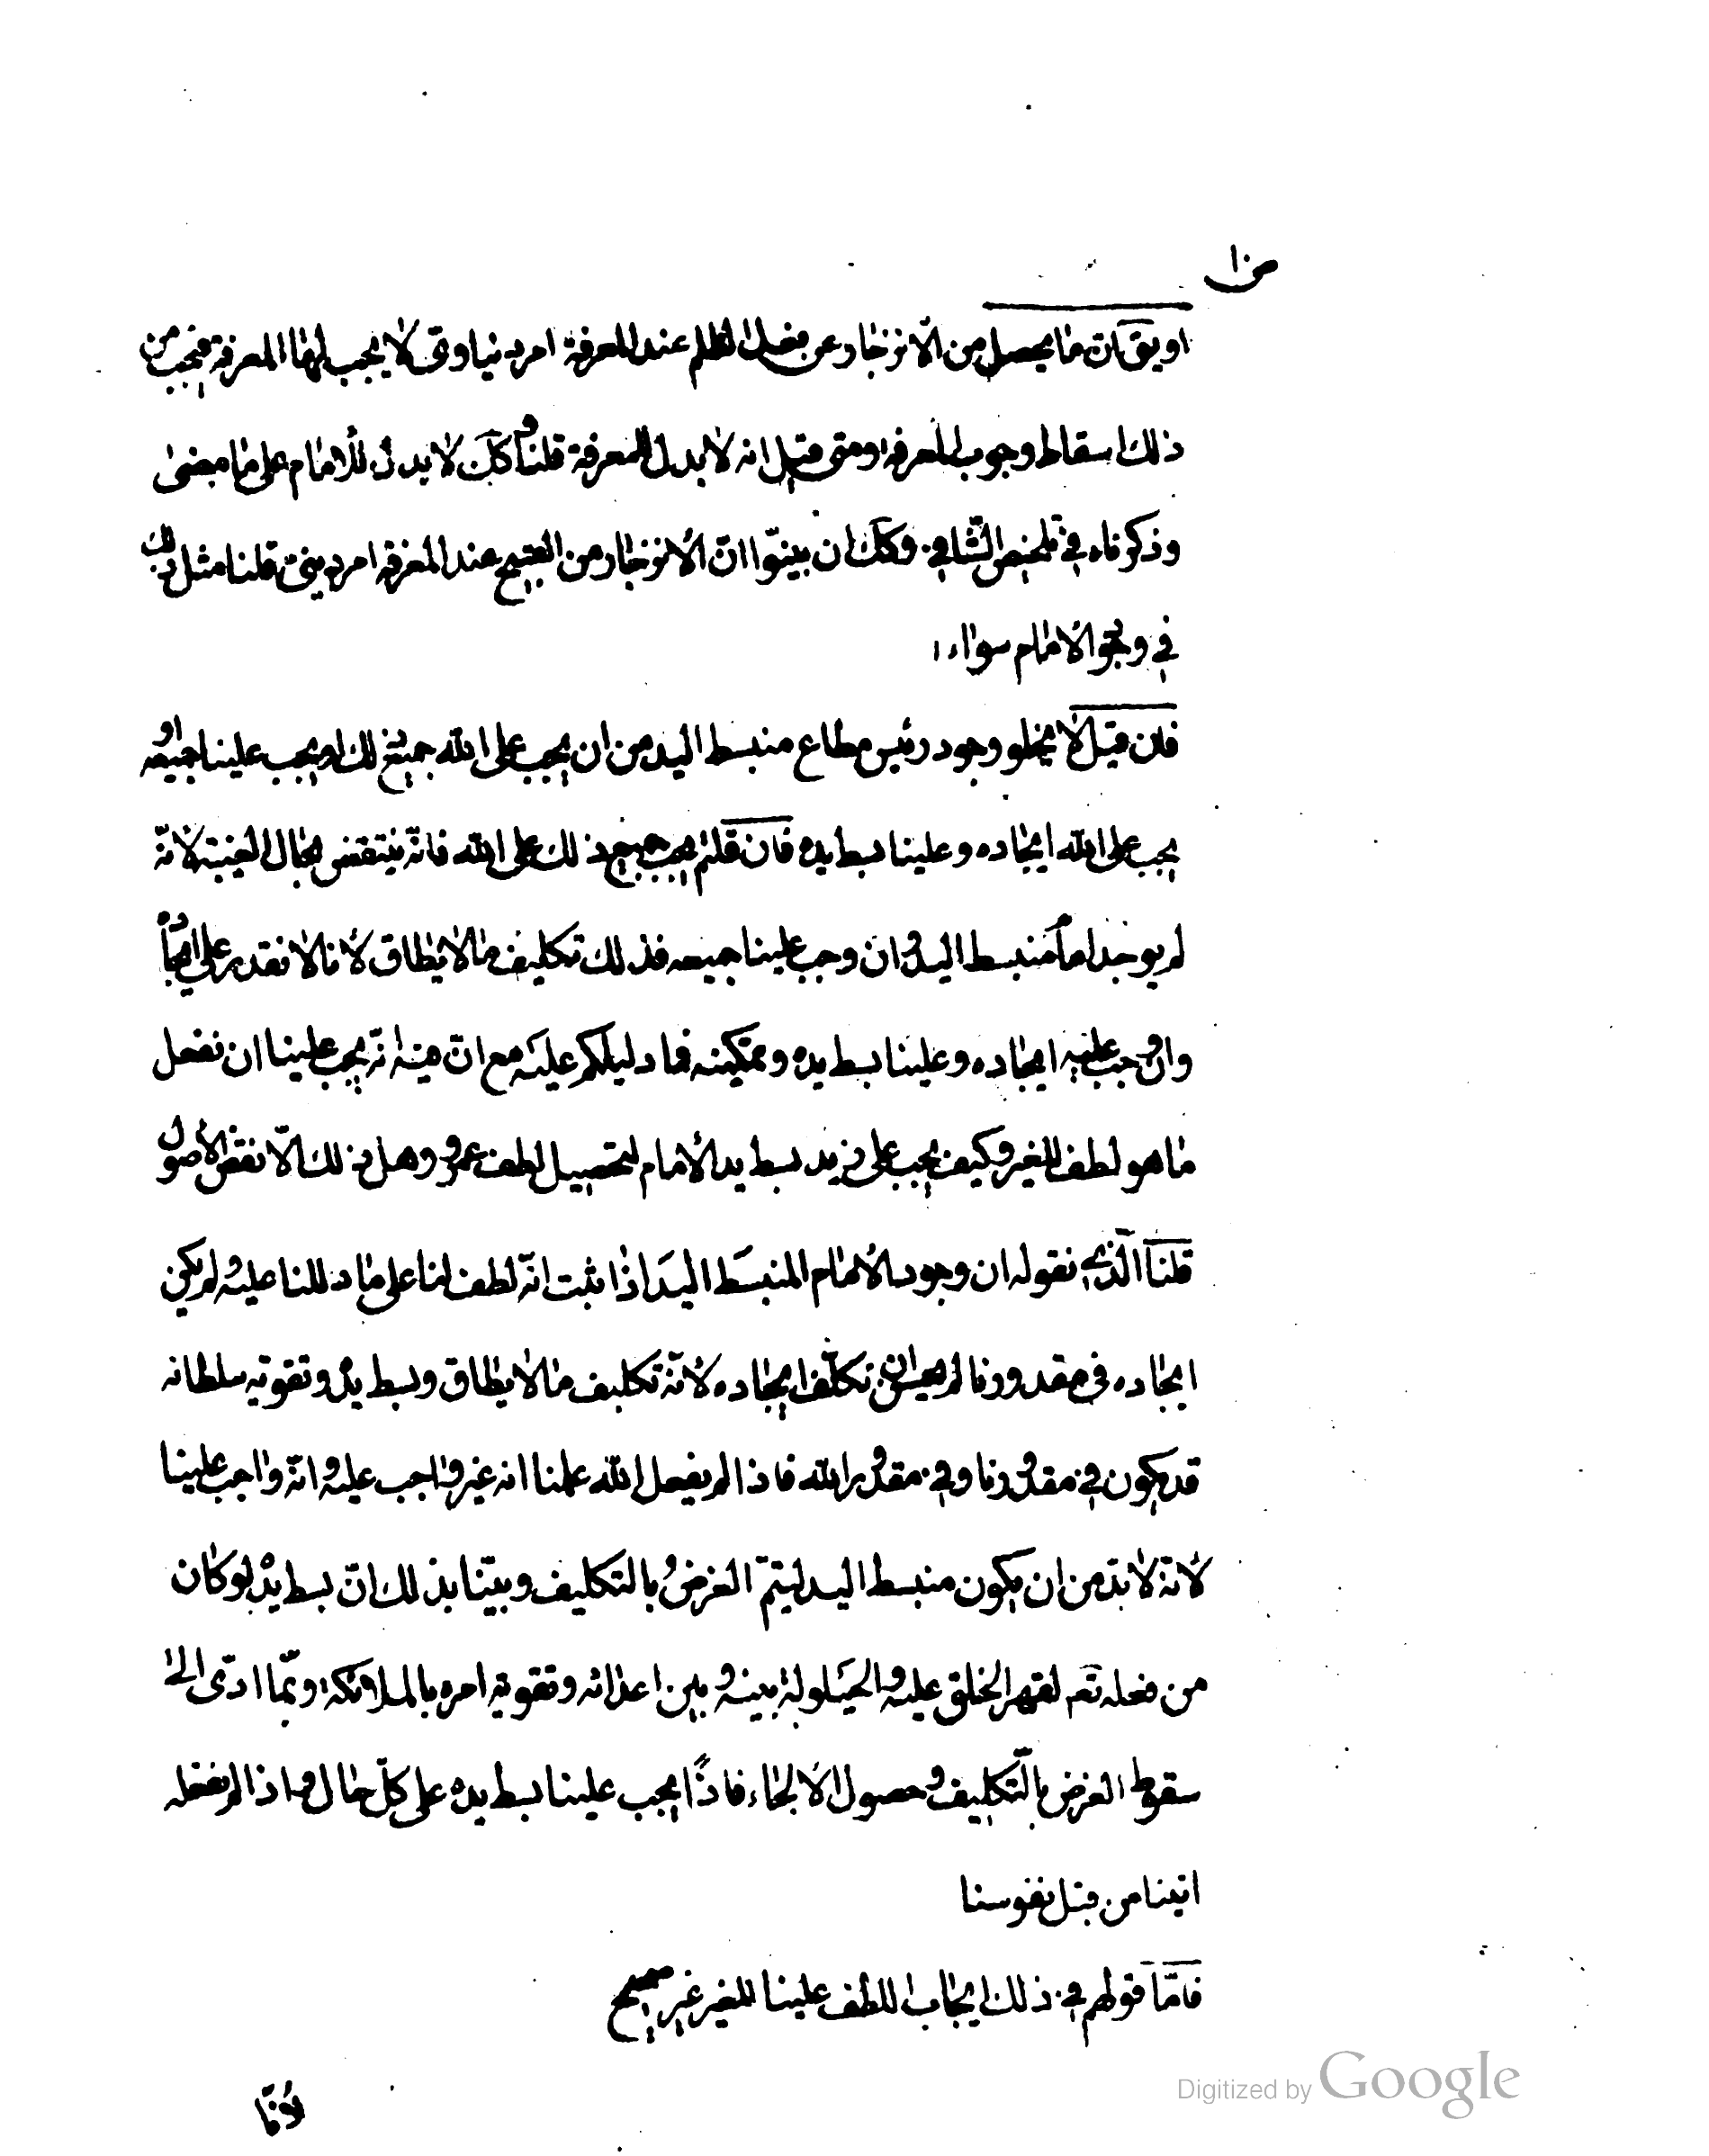 ص ١٠
او یق ان ما یحصل من الانزجار عن فعل الظلم عند المعرفة امر دنیاوی لا یجب لها المعرفة فیجب من
ذلك اسقاط وجوب المعرفة ومتی قیل انه لا بدل للمعرفة قلنا وکك لا بدل للامام علی ما مضی
وذکرناه فی تلخیص الشافی وکك ان بینوا ان الانزجار من القبیح عند المعرفة امر دینی قلنا مثل ذلك
فی وجود الامام سواء
فان قیل لا یخلو وجود رئیس مطاع منبسط الید من ان یجب علی الله جمیع ذلك او یجب علینا جمیعه او
یجب علی الله ایجاده وعلینا بسط یده فان قلتم یجب جمیع ذلك علی الله فانّه ینتقض بحال الغیبة لانّه
لم یوجد امام منبسط الید وان وجب علینا جمیعه فذلك تکلیف ما لا یطاق لانا لا نقدر علی ایجاده
وان وجب علیه ایجاده وعلینا بسط یده وتمکینه فما دلیلکم علیه مع ان فیه انه یجب علینا ان نفعل
ما هو لطف للغیر وکیف یجب علی زید بسط ید الامام لتحصیل لطف عمرو وهل ذلك الّا نقض الاصول
قلنا الّذی نقوله ان وجود الامام المنبسط الید اذا ثبت انّه لطف لنا علی ما دللنا علیه ولم یکن
ایجاده فی مقدورنا لم یحسن ان نکلّف ایجاده لانّه تکلیف ما لا یطاق وبسط یده وتقویة سلطانه
قد یکون فی مقدورنا وفی مقدور الله فاذا لم یفعل الله علمنا انه غیر واجب علیه وانّه واجب علینا
لانّه لا بدّ من ان یکون منبسط الید لیتمّ الغرض بالتکلیف وبیّنا بذلك انّ بسط یده لو کان
من فعله تعم لقهر الخلق علیه والحیلولة بینه وبین اعدائه وتقویة امره بالملائکة وبما ادّی الی
سقوط الغرض بالتّکلیف وحصول الالجاء فاذًا یجب علینا بسط یده علی کلّ حال واذا لم نفعله
اتینا من قبل نفوسنا
فامّا قولهم فی ذلك ایجاب اللطف علینا للغیر غیر صحیح
لانّا
Digitized by Google